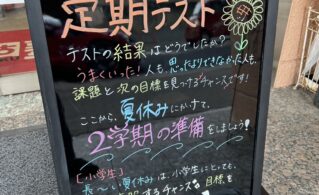 定期テスト
テストの結果はどうでしたか？
うまくいった！人も、思ったよりできなかった人も、
課題と次の目標を見つけるチャンスです！
ここから、夏休みにかけて、
2学期の準備をしましょう！
［小学生］
長〜い夏休みは、小学生にとっても、
するチャンス 目標を